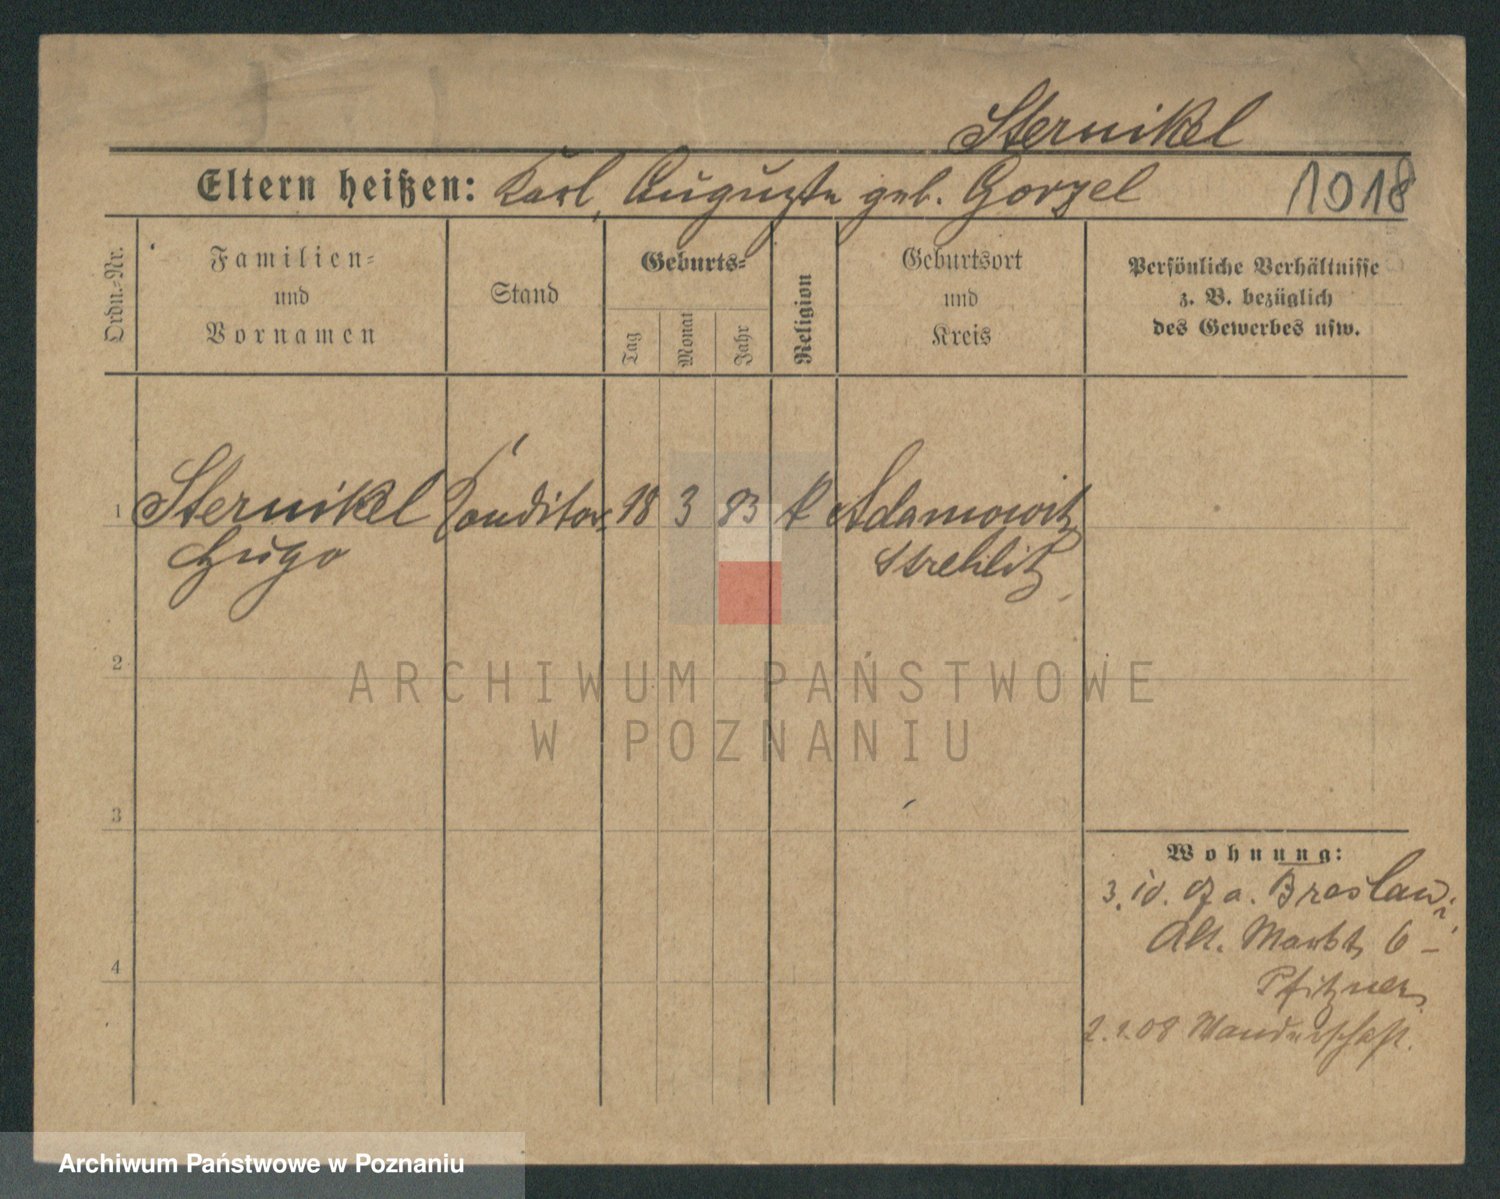 Sternikel
Eltern heißen: Karl, Auguste geb. Gorzel 1918
Ordn.-Nr.
Familien-
und
Vornamen
Stand
Geburts-
Tag
Monat
Jahr
Religion
Geburtsort
und
Kreis
Persönliche Verhältnisse
z. B. bezüglich
des Gewerbes usw.
1 Sternikel Konditor 18 3 83 k Adamowitz
Hugo Strehlitz
2
3
4
Wohnung:
3. Breslau
Alt. Markt 6 –
Pfitzner
08 Wanderschaft.
ARCHIWUM PAŃSTWOWE
W POZNANIU
Archiwum Państwowe w Poznaniu